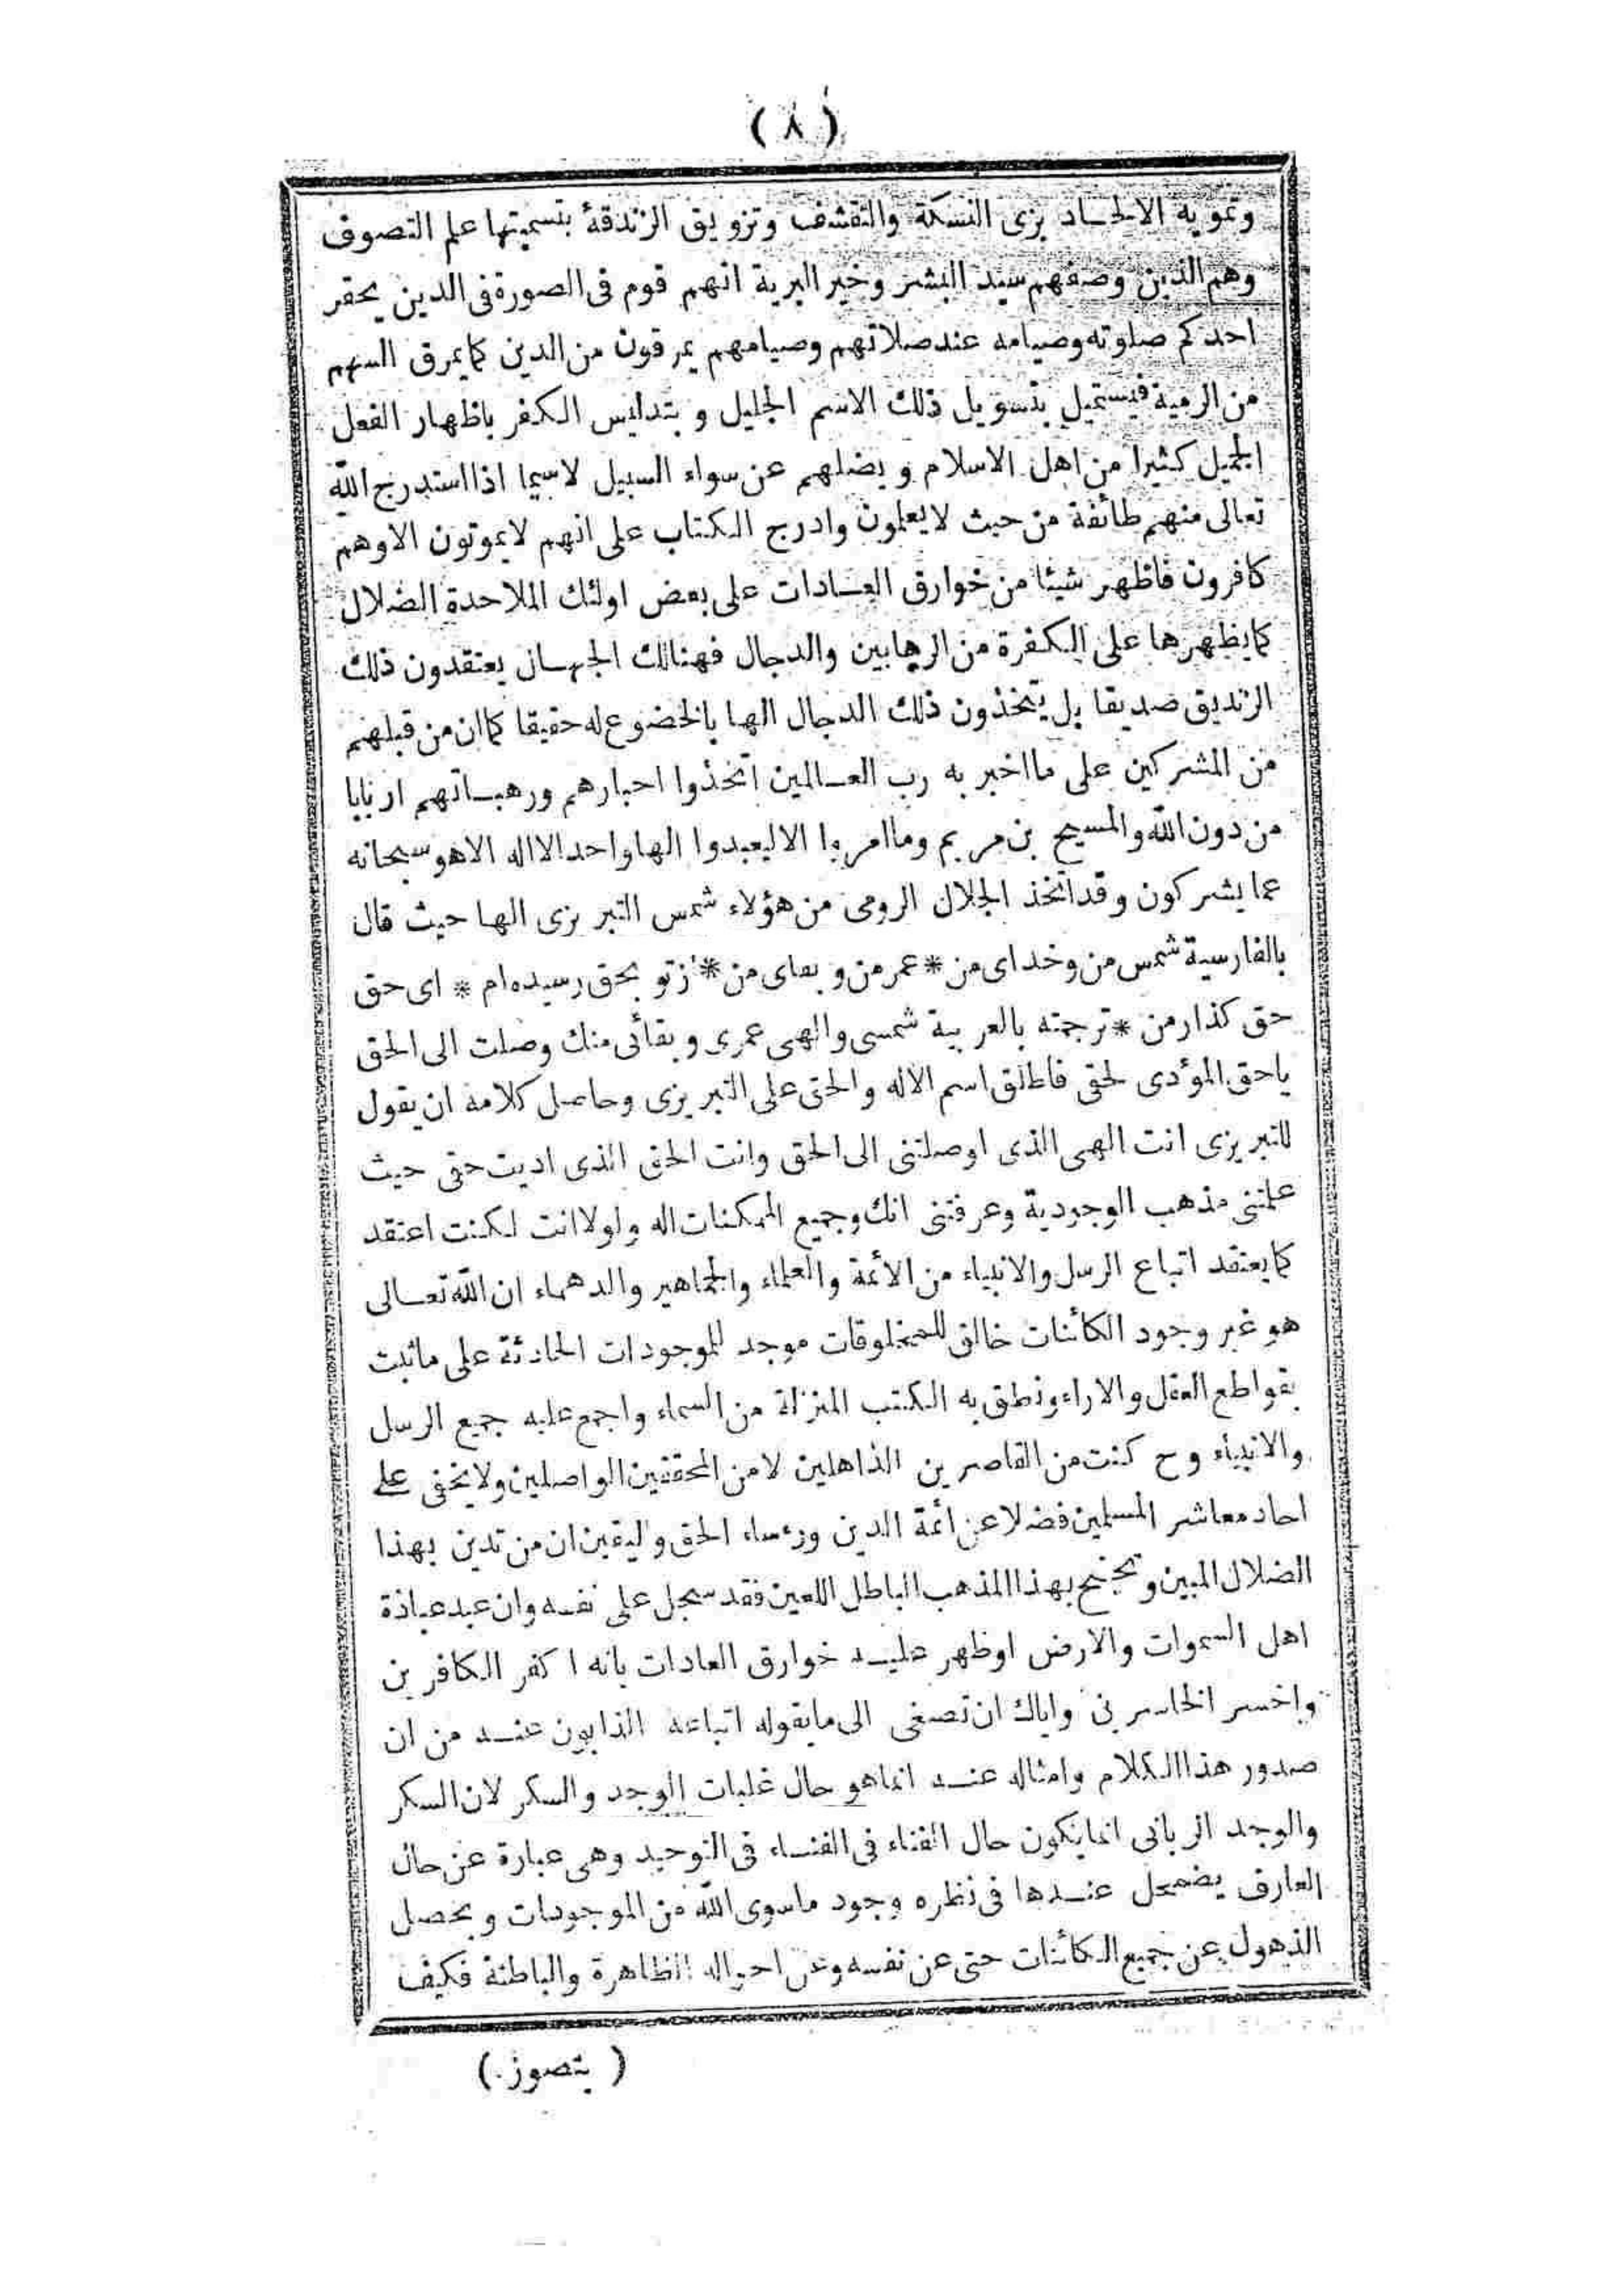 ( ٨ )
وتمويه الالحاد بزى النسكة والتقشف وتزويق الزندقة بتسميتها علم التصوف
وهم الذين وصفهم سيد البشر وخير البرية انهم قوم فى الصورة فى الدين يحقر
احدكم صلوته وصيامه عند صلاتهم وصيامهم يمرقون من الدين كما يمرق السهم
من الرمية فيستميل بتسويل ذلك الاسم الجليل وبتدليس الكفر باظهار الفعل
الجميل كثيرا من اهل الاسلام ويضلهم عن سواء السبيل لاسيما اذا استدرج الله
تعالى منهم طائفة من حيث لا يعلمون وادرج الكتاب على انهم لا يموتون الا وهم
كافرون فاظهر شيئا من خوارق العادات على بعض اولئك الملاحدة الضلال
كما يظهرها على الكفرة من الرهابين والدجال فهنالك الجهال يعتقدون ذلك
الزنديق صديقا بل يتخذون ذلك الدجال الها بالخضوع له حقيقا كما ان من قبلهم
من المشركين على ما اخبر به رب العالمين اتخذوا احبارهم ورهبانهم اربابا
من دون الله والمسيح بن مريم وما امروا الا ليعبدوا الها واحدا لا اله الا هو سبحانه
عما يشركون وقد اتخذ الجلال الرومى من هؤلاء شمس التبريزى الها حيث قال
بالفارسية شمس من وخداى من * عمر من وبقاى من * از تو بحق رسيده ام * اى حق
حق كذار من * ترجمته بالعربية شمسى والهى عمرى وبقائى منك وصلت الى الحق
ياحق المؤدى لحقى فاطلق اسم الاله والحق على التبريزى وحاصل كلامه ان يقول
للتبريزى انت الهى الذى اوصلتنى الى الحق وانت الحق الذى اديت حقى حيث
علمتنى مذهب الوجودية وعرفتنى انك وجميع الممكنات اله ولولا انت لكنت اعتقد
كما يعتقد اتباع الرسل والانبياء من الائمة والعلماء والجماهير والدهماء ان الله تعالى
هو غير وجود الكائنات خالق للمخلوقات موجد للموجودات الحادثة على ماثبت
بقواطع العقل والاراء ونطق به الكتب المنزلة من السماء واجمع عليه جميع الرسل
والانبياء وح كنت من القاصرين الذاهلين لا من المحققين الواصلين ولا يخفى على
احاد معاشر المسلمين فضلا عن ائمة الدين ورءساء الحق واليقين ان من تدين بهذا
الضلال المبين وتبجح بهذا المذهب الباطل اللعين فقد سجل على نفسه وان عبد عبادة
اهل السموات والارض اوظهر عليه خوارق العادات بانه اكفر الكافرين
واخسر الخاسرين واياك ان تصغى الى مايقوله اتباعه الذابون عنه من ان
صدور هذا الكلام وامثاله عنه انماهو حال غلبات الوجد والسكر لان السكر
والوجد الربانى انما يكون حال الفناء فى الفناء فى التوحيد وهى عبارة عن حال
العارف يضمحل عندها فى نظره وجود ماسوى الله من الموجودات ويحصل
الذهول عن جميع الكائنات حتى عن نفسه وعن احواله الظاهرة والباطنة فكيف
( يتصور )